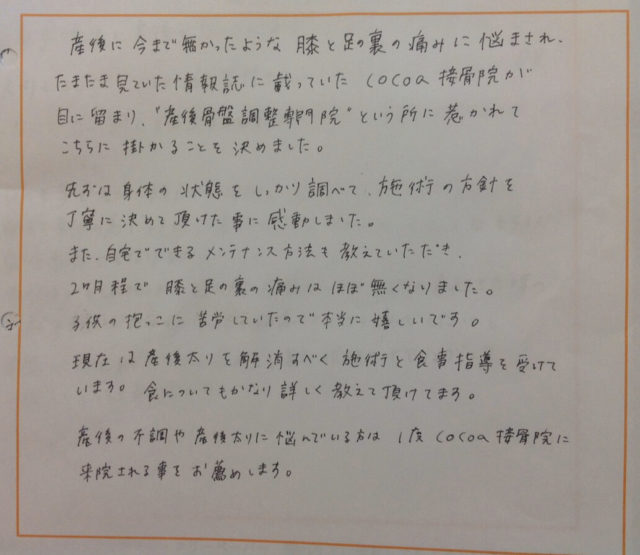 産後に今まで無かったような膝と足の裏の痛みに悩まされ、
たまたま見ていた情報誌に載っていたcocoa接骨院が
目に留まり、"産後骨盤調整専門院"という所に惹かれて
こちらに掛かることを決めました。
先ずは身体の状態をしっかり調べて、施術の方針を
丁寧に決めて頂けた事に感動しました。
また、自宅でできるメンテナンス方法も教えていただき、
2ヶ月程で膝と足の裏の痛みはほぼ無くなりました。
子供の抱っこに苦労していたので本当に嬉しいです。
現在は産後太りを解消すべく施術と食事指導を受けて
います。食についてもかなり詳しく教えて頂けてます。
産後の不調や産後太りに悩んでいる方は1度cocoa接骨院に
来院される事をお薦めします。